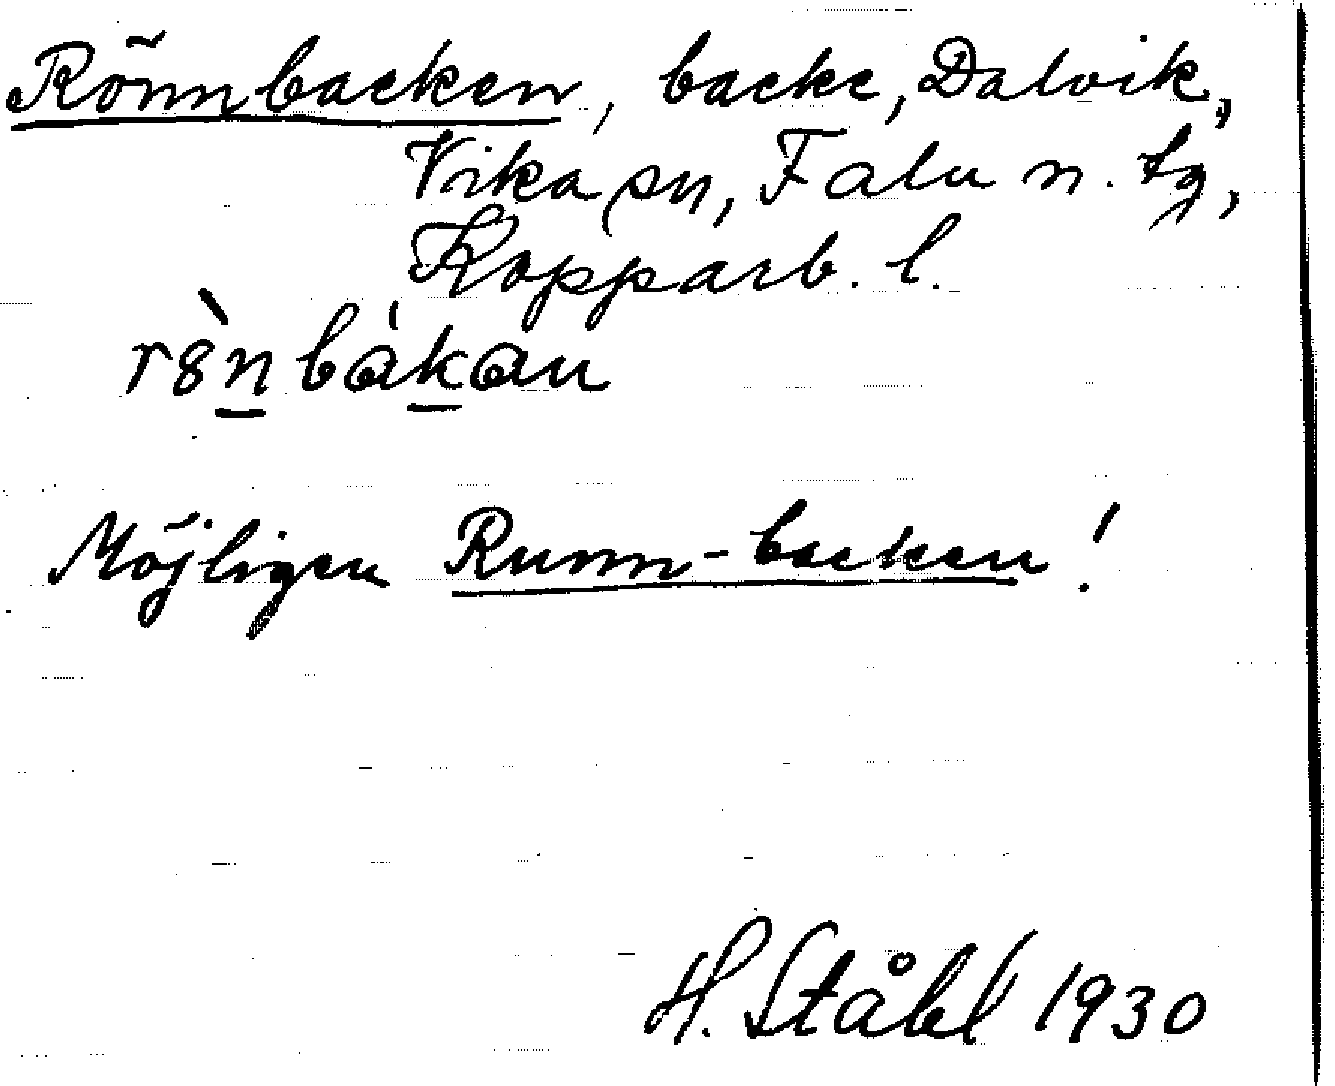 Rönnbacken, backe, Dalvik,
Vika sn, Falu n. tg,
Kopparb. l.
Möjligen Runn-backen!
H. Ståhl 1930